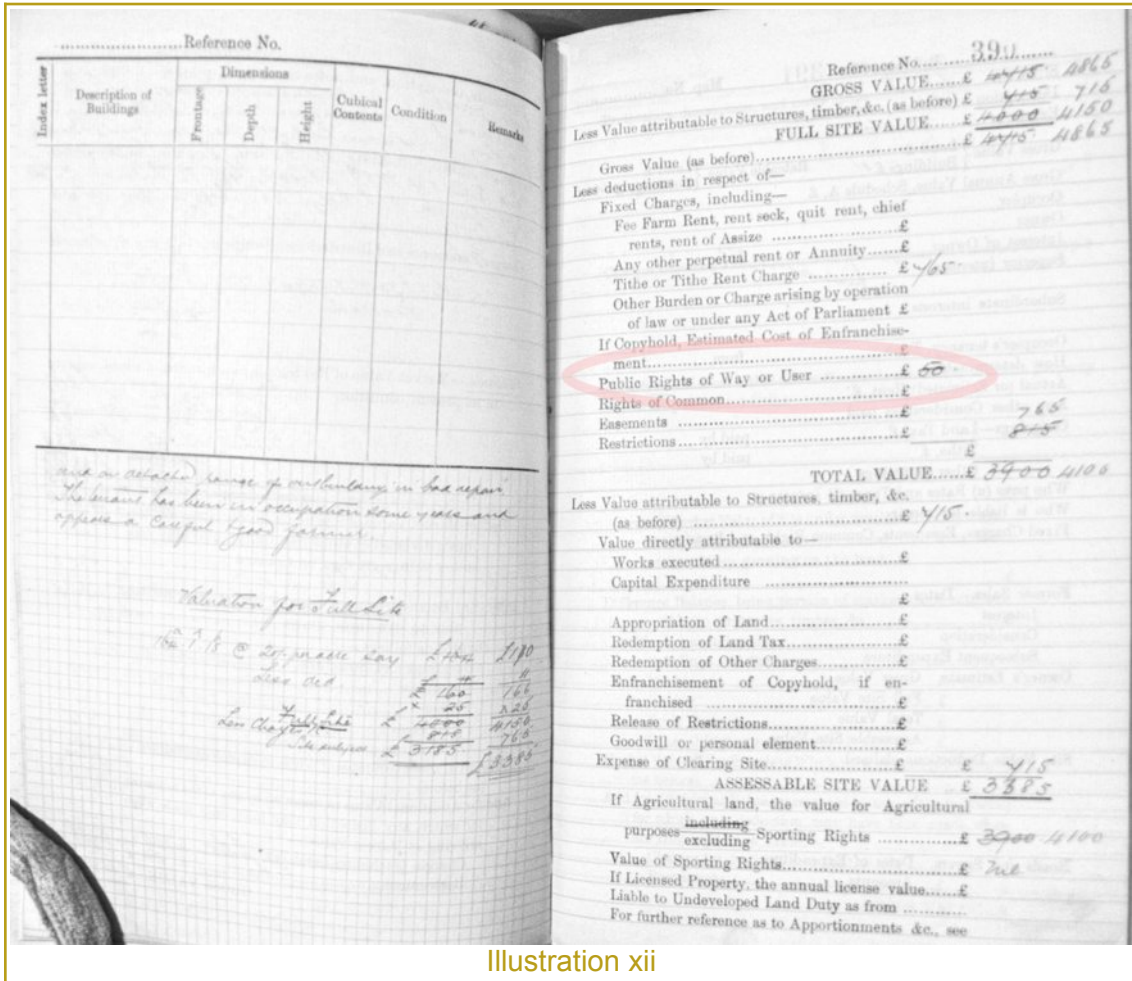 Reference No.
Index letter
Description of Buildings
Dimensions
Frontage
Depth
Height
Cubical Contents
Condition
Remarks
and on detached range of outbuildings in bad repair
The tenant has been in occupation some years and
appears a careful & good farmer.
Valuation for Full Site
@ 20/- per acre say £170
Less ded. 11
£ 160 166
x 25 x 25
Full Site £ 4000 4150
Less Charges 815 765
£ 3185 £3385
Reference No. 390
GROSS VALUE £ 4715 4865
Less Value attributable to Structures, timber, &c. (as before) £ 715 715
FULL SITE VALUE £ 4000 4150
Gross Value (as before) £ 4715 4865
Less deductions in respect of—
Fixed Charges, including—
Fee Farm Rent, rent seck, quit rent, chief
rents, rent of Assize £
Any other perpetual rent or Annuity £
Tithe or Tithe Rent Charge £ 765
Other Burden or Charge arising by operation
of law or under any Act of Parliament £
If Copyhold, Estimated Cost of Enfranchise-
ment £
Public Rights of Way or User £ 50
Rights of Common £
Easements £ 765
Restrictions £ 815
£
TOTAL VALUE £ 3900 4100
Less Value attributable to Structures, timber, &c.
(as before) £ 715
Value directly attributable to—
Works executed £
Capital Expenditure
£
Appropriation of Land £
Redemption of Land Tax £
Redemption of Other Charges £
Enfranchisement of Copyhold, if en-
franchised £
Release of Restrictions £
Goodwill or personal element £
Expense of Clearing Site £ £ 715
ASSESSABLE SITE VALUE £ 3385
If Agricultural land, the value for Agricultural
purposes including excluding Sporting Rights £ 3900 4100
Value of Sporting Rights £ Nil
If Licensed Property, the annual license value £
Liable to Undeveloped Land Duty as from
For further reference as to Apportionments &c., see
Illustration xii